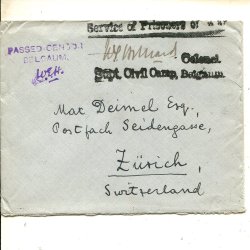 Service of Prisoners of War
PASSED CENSOR
BELGAUM.
Colonel.
Supt. Civil Camp, Belgaum
Max Deimel Esq.,
Postfach Seidengasse,
Zürich,
Switzerland